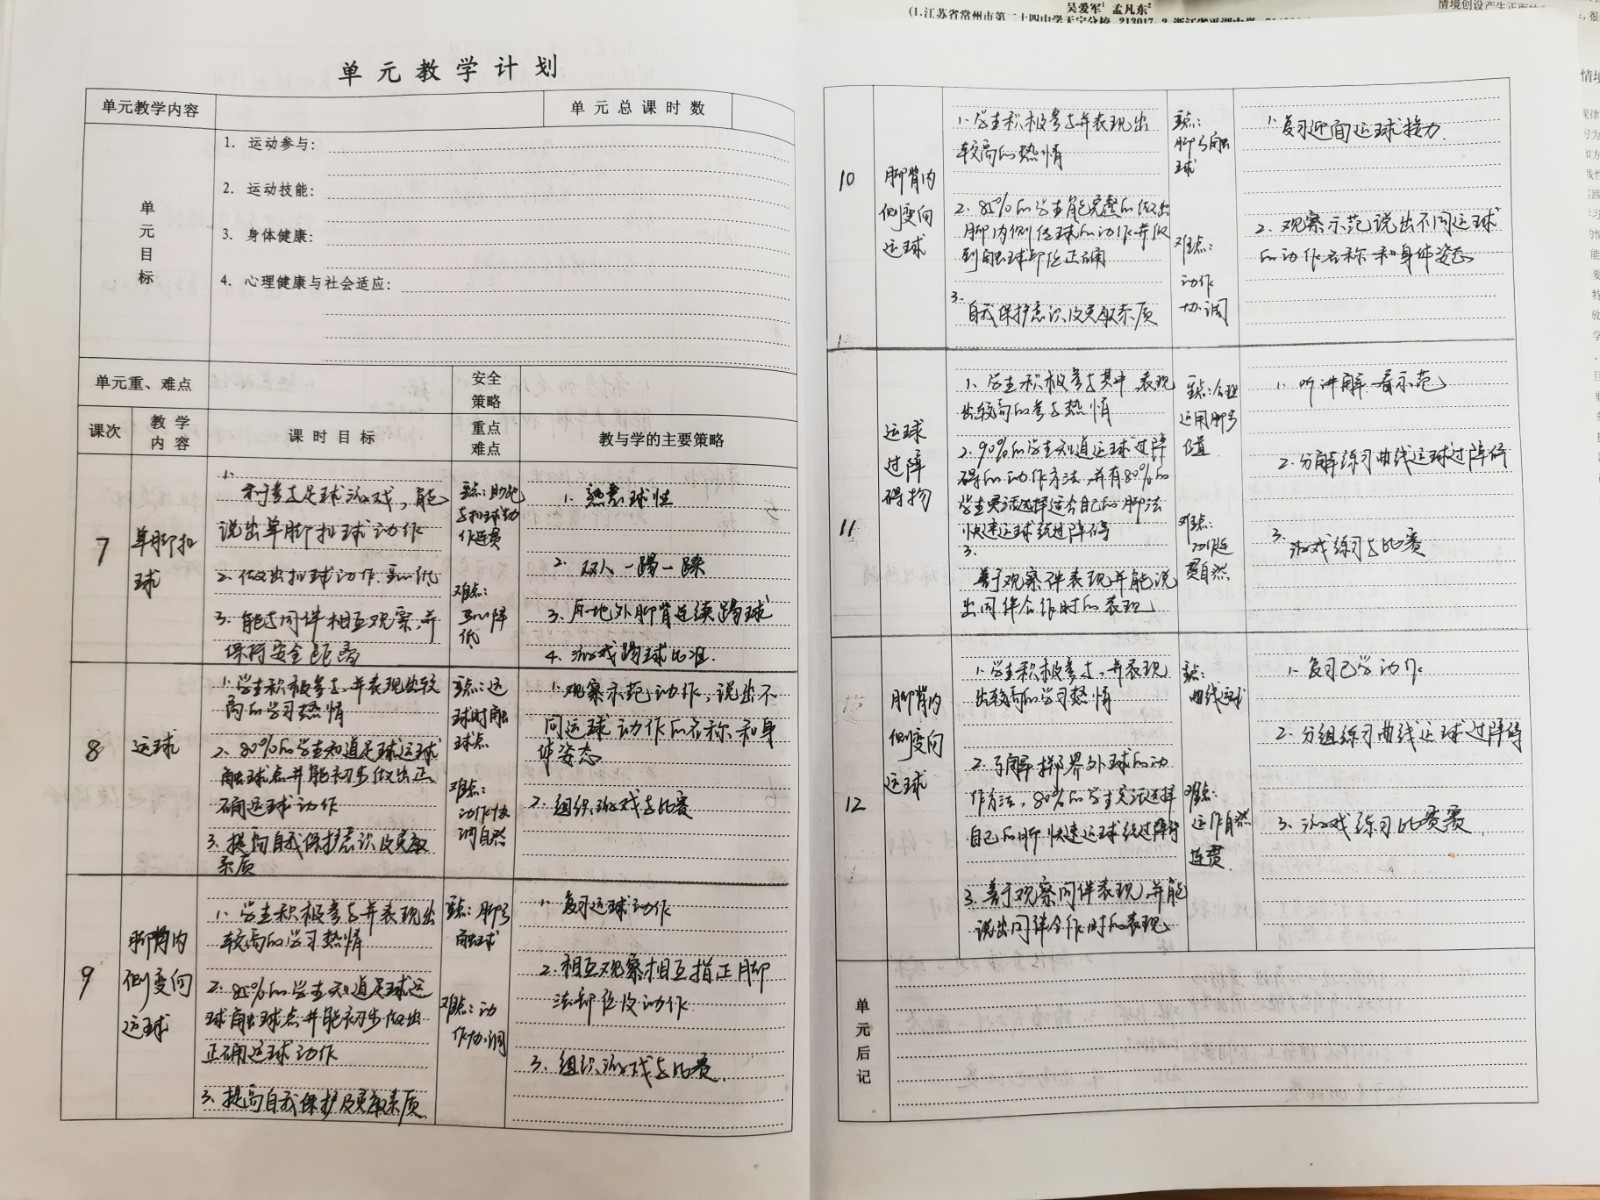 吴爱军¹ 孟凡东²
单元教学计划
单元教学内容
单元总课时数
单元目标
1. 运动参与：
2. 运动技能：
3. 身体健康：
4. 心理健康与社会适应：
单元重、难点
安全策略
课次
教学内容
课时目标
重点难点
教与学的主要策略
7
单脚扣球
1.
足球游戏，能
说出单脚扣球动作
2. 做出扣球动作
3. 能与同伴相互观察，并
保持安全距离
重点：
与扣球动
作连贯
难点：
重心降
低
1. 熟悉球性
2. 双人一踢一踩
3. 原地外脚背连续踢球
4. 游戏踢球比准.
8
运球
1. 学生积极参与，并表现出较
高的学习热情
2. 80%的学生知道足球运球
触球点并能初步做出正
确运球动作
3. 提高自我保护意识及灵敏
素质
重点：运
球时触
球点
难点：
动作协
调自然
1. 观察示范动作，说出不
同运球动作的名称和身
体姿态
2. 组织游戏与比赛
9
脚背内
侧变向
运球
1. 学生积极参与并表现出
较高的学习热情
2. 85%的学生知道足球运
球触球点并能初步做出
正确运球动作
3. 提高自我保护及灵敏素质
重点：脚弓
触球
难点：动
作协调
1. 复习运球动作
2. 相互观察相互指正脚
法部位及动作
3. 组织游戏与比赛.
10
脚背内
侧变向
运球
1. 学生积极参与并表现出
较高的热情
2. 85%的学生能完整的做出
脚内侧运球的动作并做
到触球部位正确
3.
自我保护意识及灵敏素质
重点：
脚弓触
球
难点：
动作
协调
1. 复习迎面运球接力.
2. 观察示范说出不同运球
的动作名称和身体姿态
11
运球
过障
碍物
1. 学生积极参与其中，表现
出较高的参与热情
2. 90%的学生知道运球过障
碍的动作方法，并有80%的
学生灵活选择适合自己的脚法
快速运球绕过障碍
3.
善于观察伴表现并能说
出同伴合作时的表现
重点：合理
运用脚弓
位置
难点：
动作连
贯自然
1. 听讲解看示范
2. 分解练习曲线运球过障碍
3.
游戏练习与比赛
12
脚背内
侧变向
运球
1. 学生积极参与，并表现
出较高的学习热情
2. 了解掷界外球的动
作方法，80%的学生灵活选择
自己的脚快速运球绕过障碍
3. 善于观察同伴表现，并能
说出同伴合作时的表现.
重点：
曲线运球
难点：
运作自然
连贯.
1. 复习已学动作
2. 分组练习曲线运球过障碍
3. 游戏练习比赛赛
单元后记